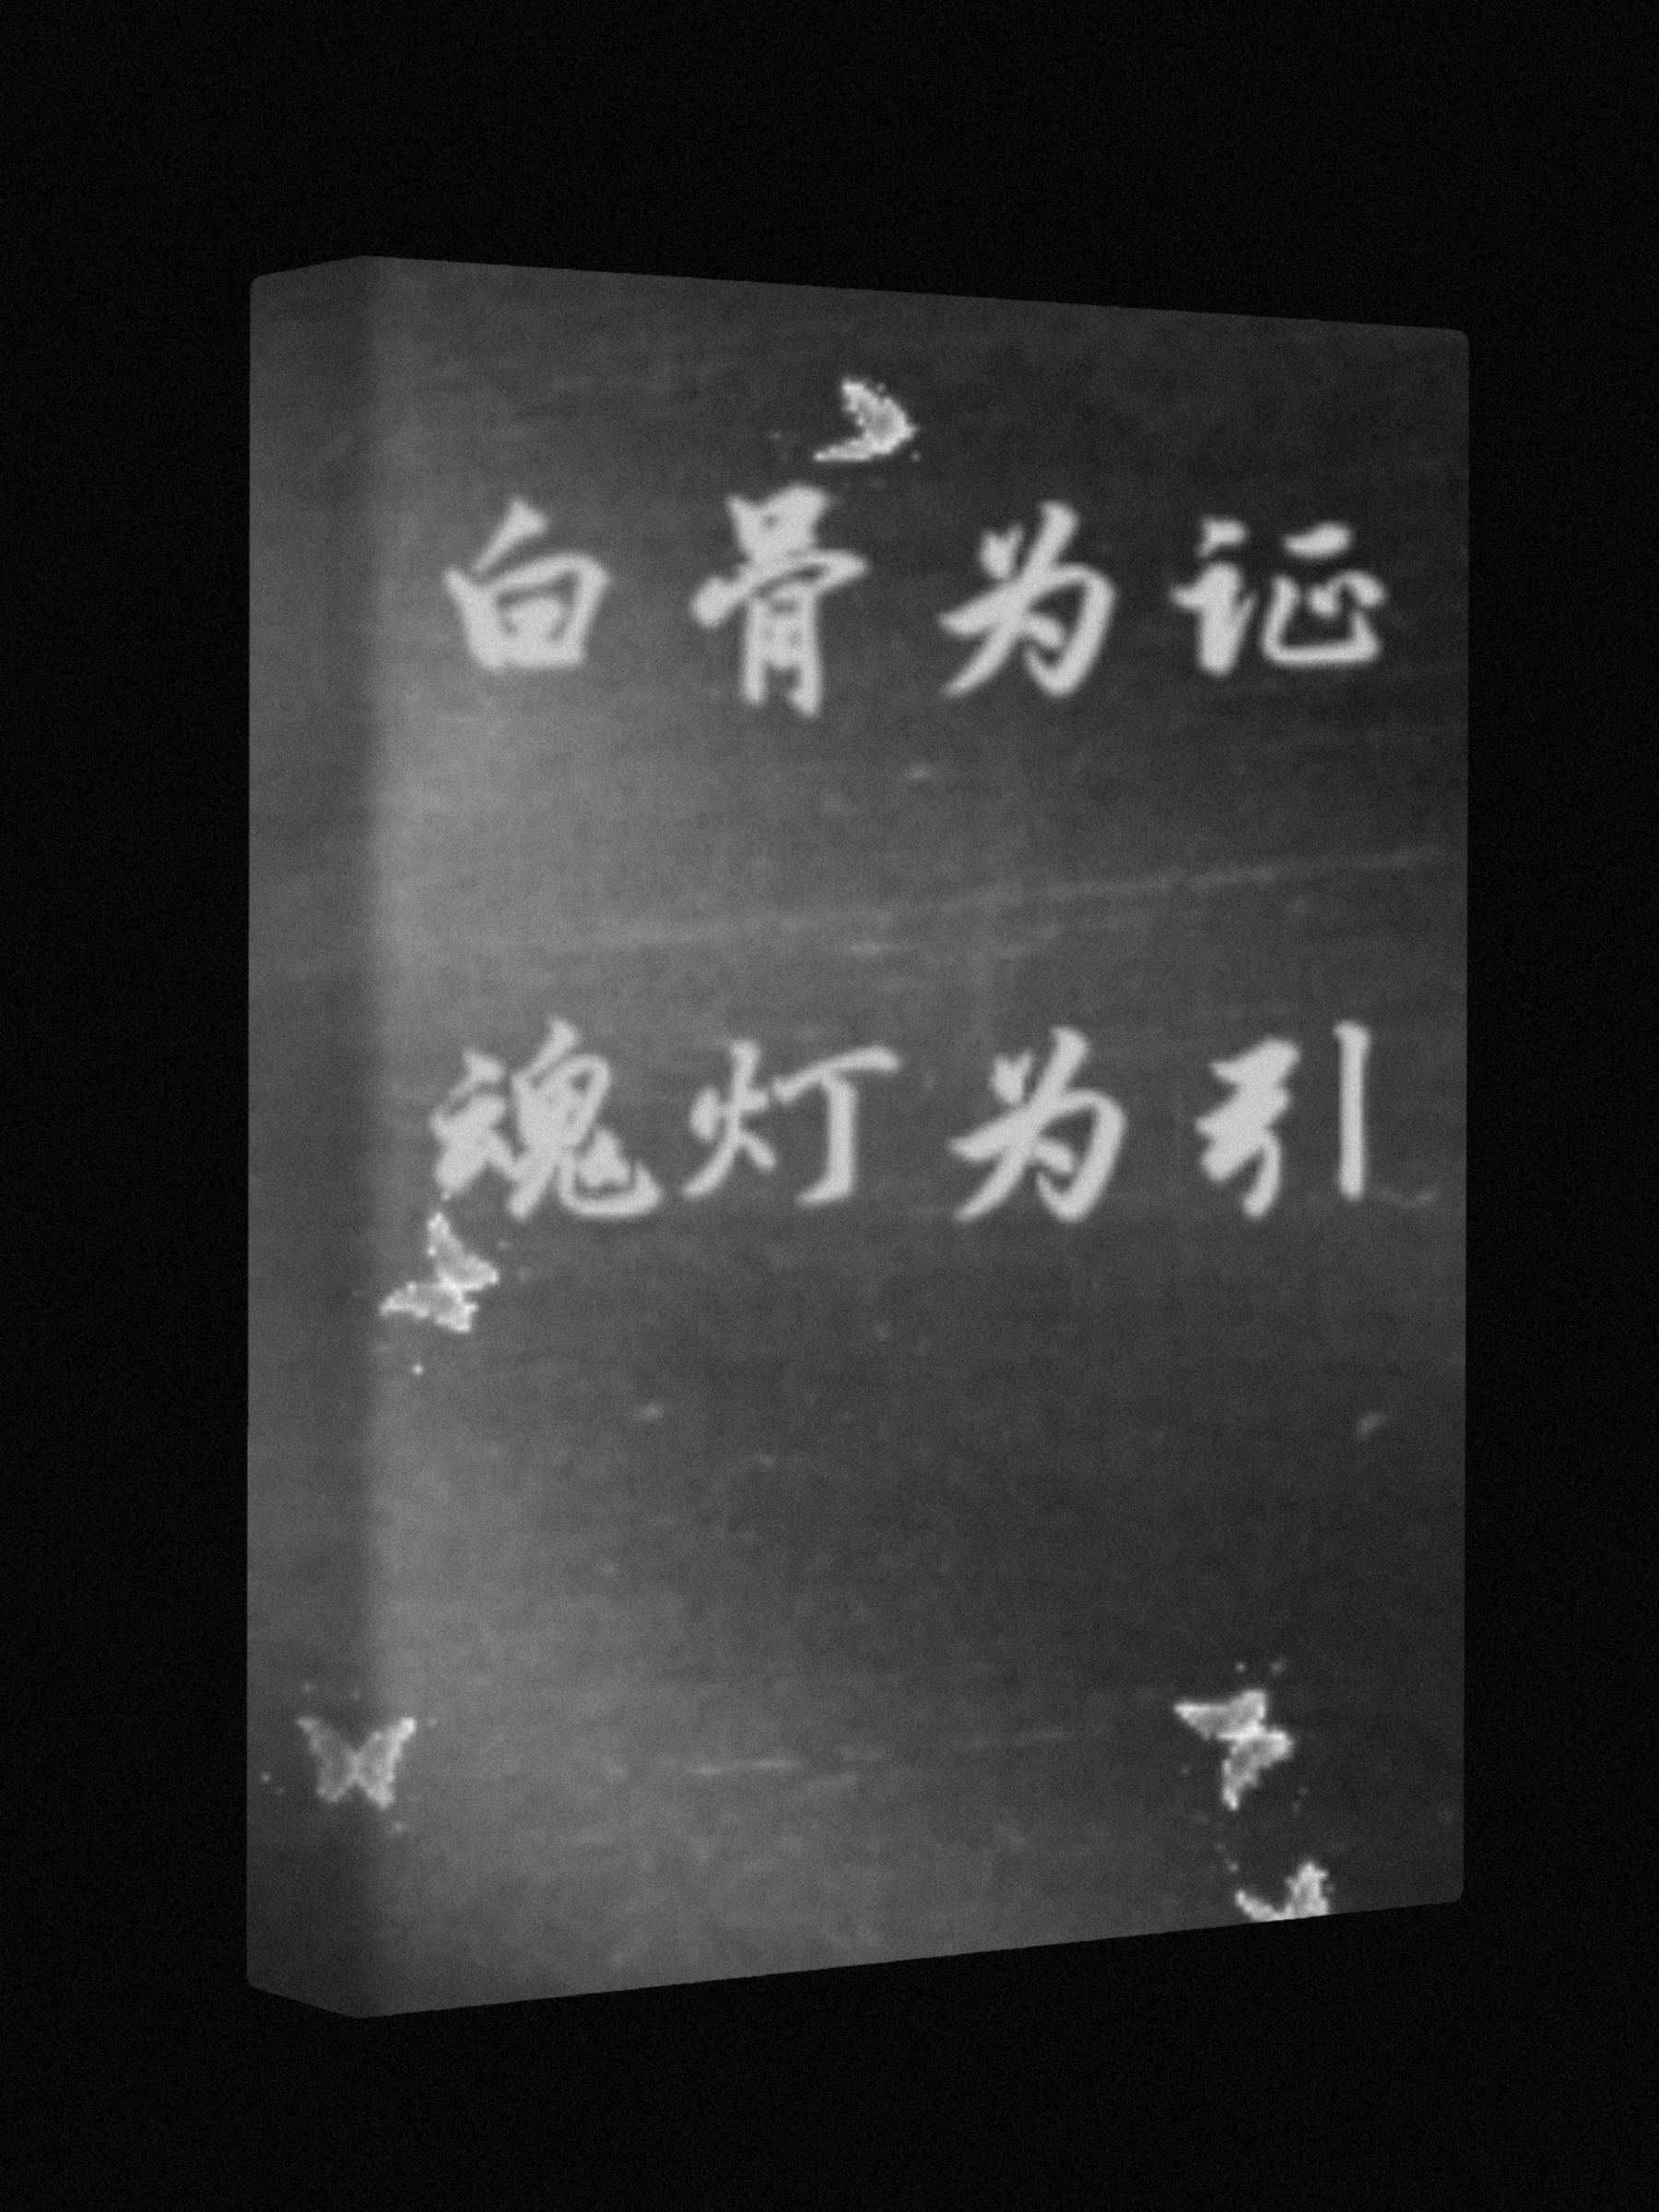 白骨为证
魂灯为引